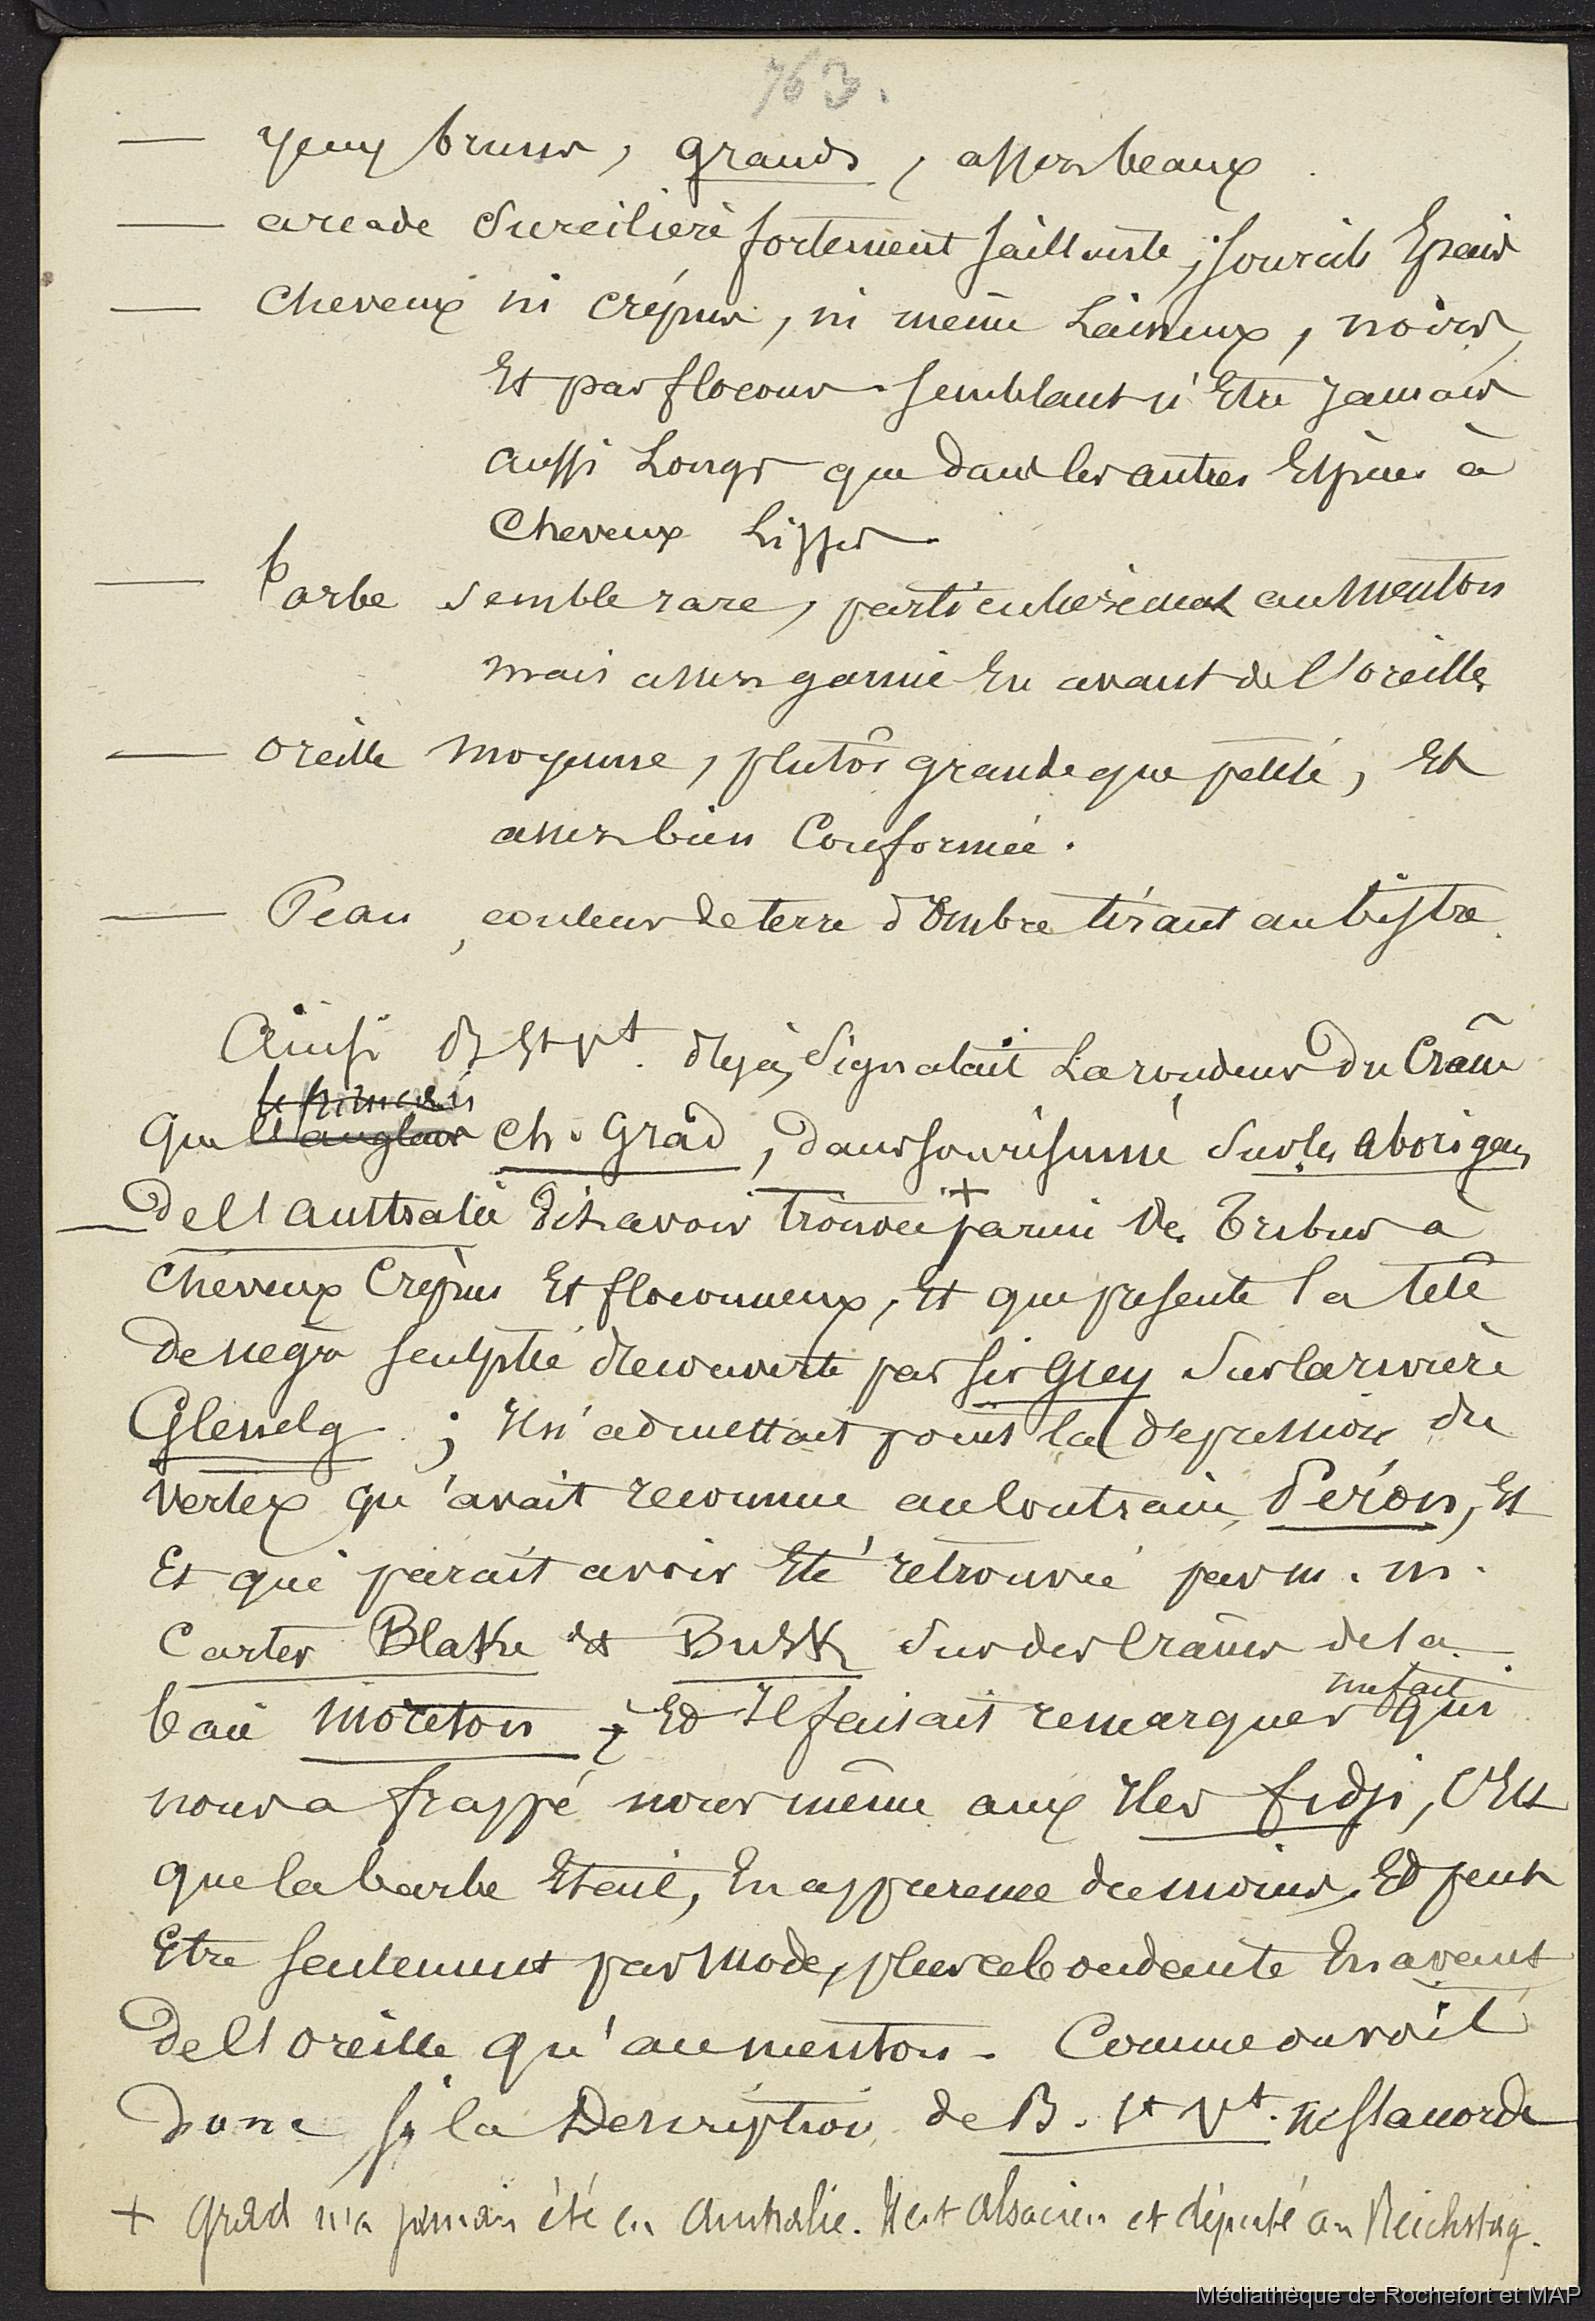 763.
— yeux bruns, grands, assez beaux.
— arcade Surcilière fortement saillante; sourcils Epais
— Cheveux ni crépus, ni même Laineux, noirs,
Et par flocons semblant n'Etre jamais
aussi Longs que dans les autres Espèces à
Cheveux Lisses.
— barbe semble rare, particulièrement au menton
mais assez garnie En avant de l'oreille,
— oreille moyenne, plutôt grande que petite, Et
assez bien Conformée.
— Peau, couleur de terre d'Ombre tirant au bistre.
Ainsi B St Vt. déjà, Signalait La rondeur Du Crâne
que Ch. Grad, dans son résumé Sur les aborigens
De l'australie dit avoir trouvée + parmi des Tribus à
cheveux Crépus Et floconneux, Et que présente la tête
De négre sculptée découverte par Sir Grey Sur la rivière
Glenelg; Il n'admettait point la dépression du
Vertex qu'avait reconnue au Contraire, Péron, Et
Et qui parait avoir Eté retrouvée par m. m.
Carter Blake Et Busk Sur des Crânes de la
baie Moreton; Et Il faisait remarquer un fait qui
nous a frappé nous même aux Iles fidji, C'Est
que la barbe Etait, En apparence du moins, Et peut
Etre seulement par mode, plus abondante En avant
De l'oreille qu'au menton. Comme on voit
Donc si la Description de B. St Vt. ne s'accorde
+ Grad n'a jamais été en Australie. Il est alsacien et député au Reichstag.
Médiathèque de Rochefort et MAP